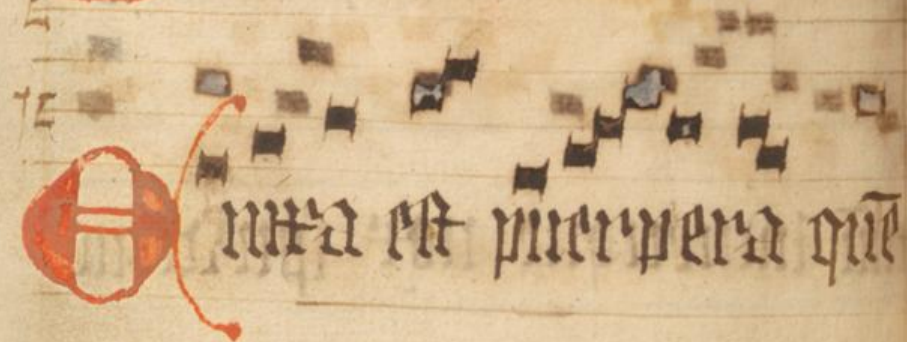 Enixa est puerpera quē